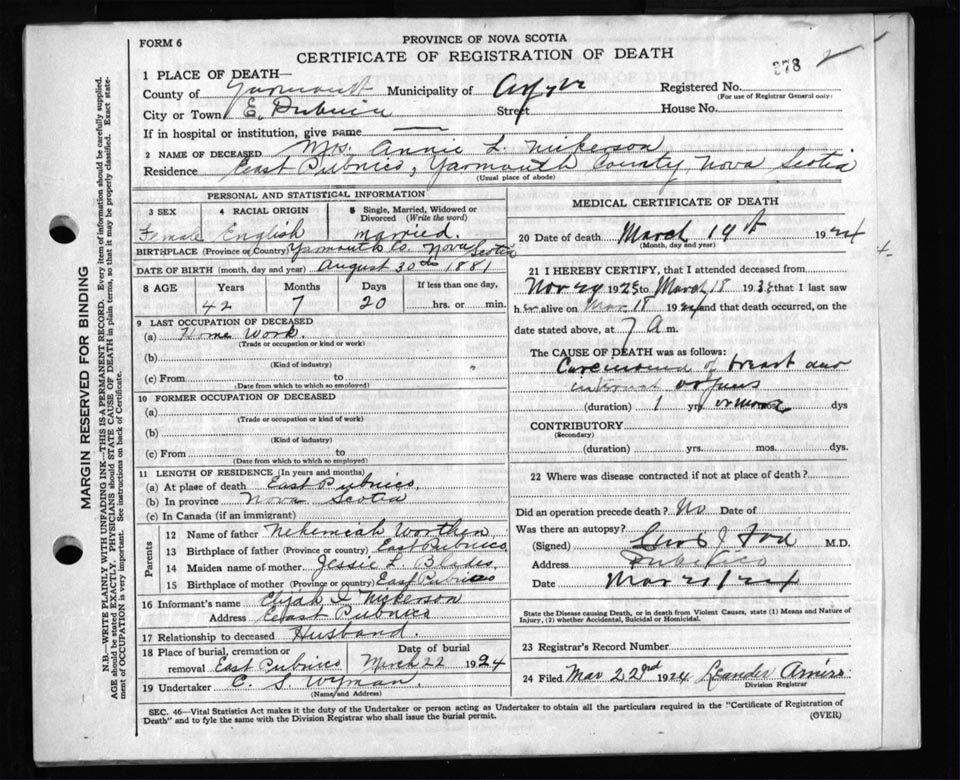 FORM 6
PROVINCE OF NOVA SCOTIA
CERTIFICATE OF REGISTRATION OF DEATH
378
1 PLACE OF DEATH—
County of Yarmouth Municipality of Argyle Registered No.
(For use of Registrar General only)
City or Town E. Pubnico Street House No.
If in hospital or institution, give name
2 NAME OF DECEASED Mrs. Annie L. Nickerson
Residence East Pubnico, Yarmouth County, Nova Scotia
(Usual place of abode)
PERSONAL AND STATISTICAL INFORMATION
3 SEX 4 RACIAL ORIGIN 5 Single, Married, Widowed or Divorced (Write the word)
Female English Married.
BIRTHPLACE (Province or Country) Yarmouth Co. Nova Scotia
DATE OF BIRTH (month, day and year) August 30th 1881
8 AGE Years Months Days If less than one day,
42 7 20 hrs. or min.
9 LAST OCCUPATION OF DECEASED
(a) Home Work.
(Trade or occupation or kind of work)
(b)
(Kind of industry)
(c) From to
(Date from which to which so employed)
10 FORMER OCCUPATION OF DECEASED
(a)
(Trade or occupation or kind of work)
(b)
(Kind of industry)
(c) From to
(Date from which to which so employed)
11 LENGTH OF RESIDENCE (In years and months)
(a) At place of death East Pubnico,
(b) In province Nova Scotia
(c) In Canada (if an immigrant)
Parents
12 Name of father Nehemiah Worthen
13 Birthplace of father (Province or country) East Pubnico,
14 Maiden name of mother Jessie L. Blades
15 Birthplace of mother (Province or country) East Pubnico
16 Informant's name Nickerson
Address East Pubnico
17 Relationship to deceased Husband.
18 Place of burial, cremation or removal East Pubnico Date of burial March 22 1924
19 Undertaker C. S. Wyman
(Name and Address)
MEDICAL CERTIFICATE OF DEATH
20 Date of death March 19th 1924
(Month, day and year)
21 I HEREBY CERTIFY, that I attended deceased from
Nov 24 192 to March 18 19 that I last saw
her alive on Mar. 18 1924 and that death occurred, on
date stated above, at 7 A m.
The CAUSE OF DEATH was as follows:
Carcinoma of breast and
internal organs
(duration) 1 yrs. or more dys
CONTRIBUTORY
(Secondary)
(duration) yrs. mos. dys.
22 Where was disease contracted if not at place of death?
Did an operation precede death? No Date of
Was there an autopsy?
(Signed) M.D.
Address Pubnico
Date Mar 21/24
State the Disease causing Death, or in death from Violent Causes, state (1) Means and Nature of
Injury, (2) whether Accidental, Suicidal or Homicidal.
23 Registrar's Record Number
24 Filed Mar 22nd 1924 Leander Amiro
Division Registrar
SEC. 46—Vital Statistics Act makes it the duty of the Undertaker or person acting as Undertaker to obtain all the particulars required in the "Certificate of Registration of
Death" and to file the same with the Division Registrar who shall issue the burial permit.
(OVER)
MARGIN RESERVED FOR BINDING
N.B.—WRITE PLAINLY WITH UNFADING INK—THIS IS A PERMANENT RECORD. Every item of information should be carefully supplied.
AGE should be stated EXACTLY. PHYSICIANS should STATE CAUSE OF DEATH in plain terms, so that it may be properly classified. Exact state-
ment of OCCUPATION is very important. See instructions on back of Certificate.